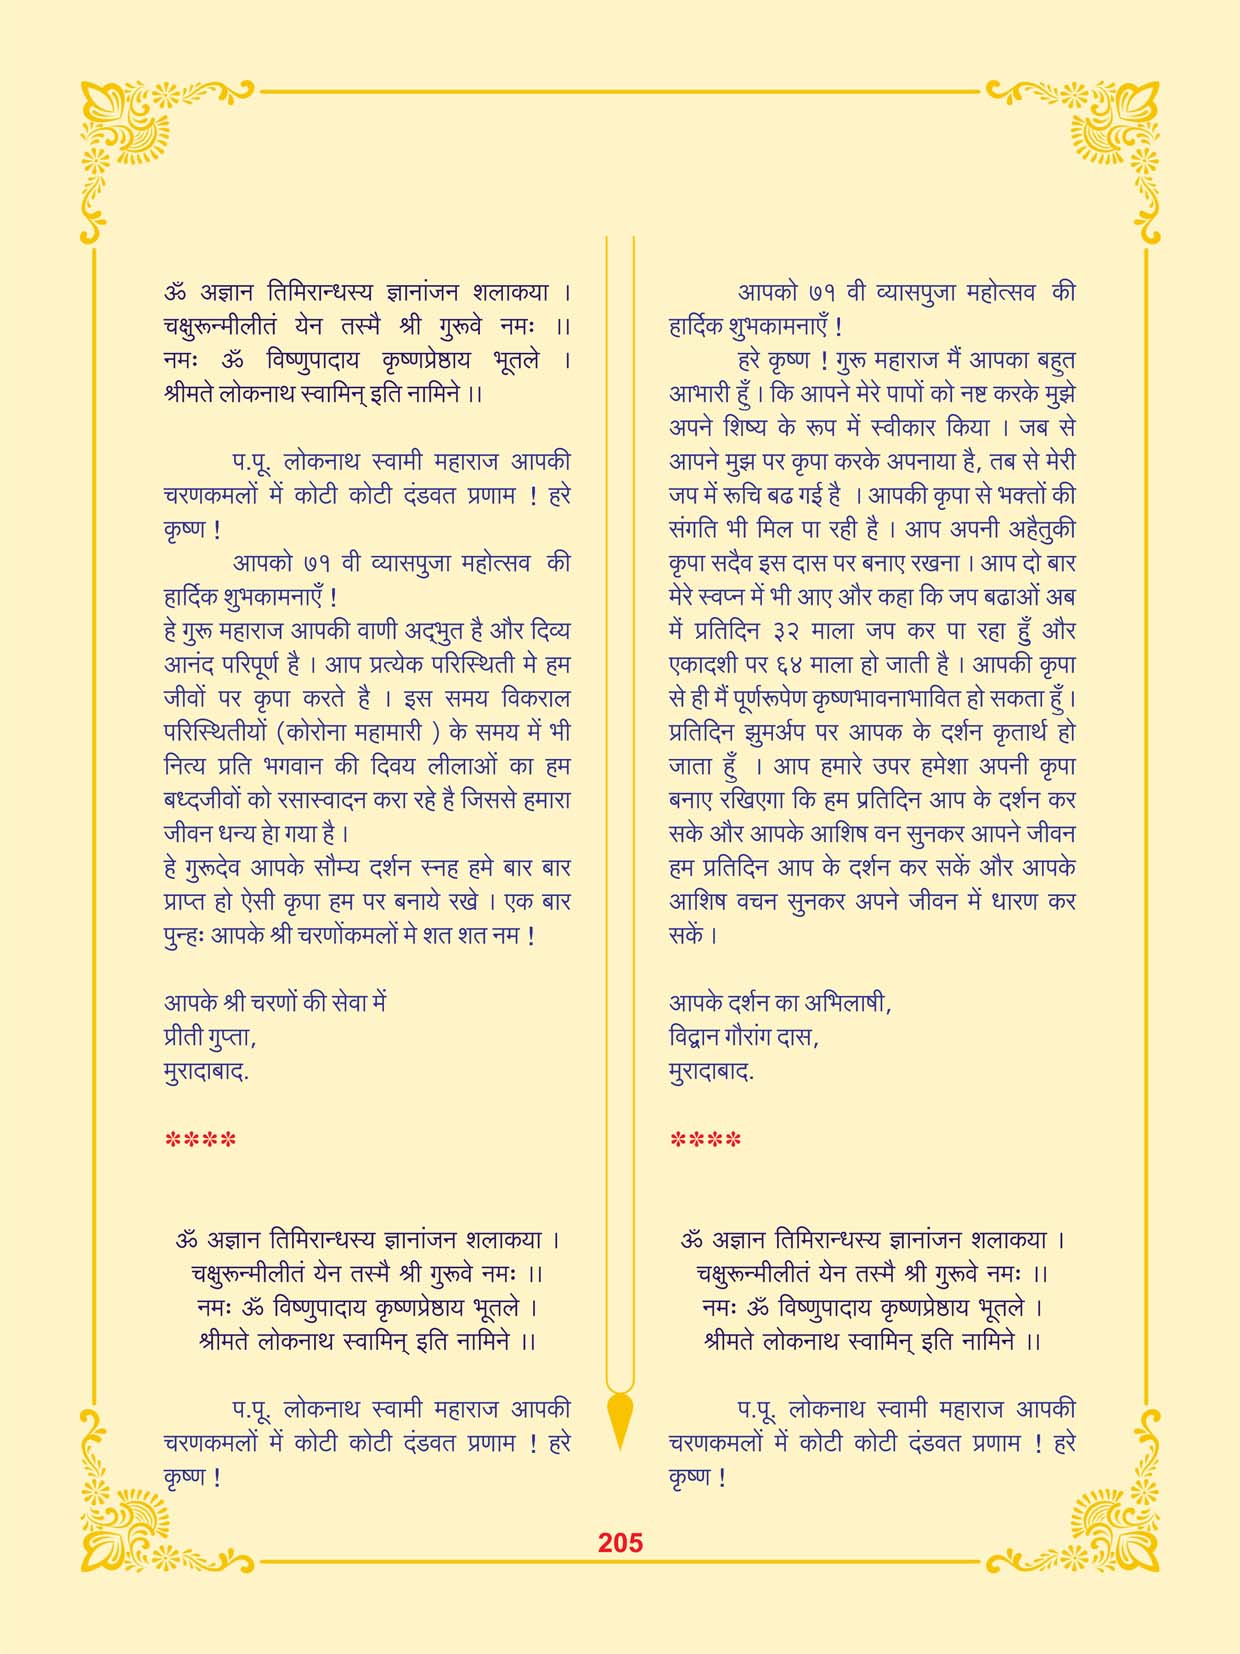 ॐ अज्ञान तिमिरान्धस्य ज्ञानांजन शलाकया ।
चक्षुरून्मीलीतं येन तस्मै श्री गुरूवे नमः ।।
नमः ॐ विष्णुपादाय कृष्णप्रेष्ठाय भूतले ।
श्रीमते लोकनाथ स्वामिन् इति नामिने ।।
प.पू. लोकनाथ स्वामी महाराज आपकी
चरणकमलों में कोटी कोटी दंडवत प्रणाम ! हरे
कृष्ण !
आपको ७१ वी व्यासपुजा महोत्सव की
हार्दिक शुभकामनाएँ !
हे गुरू महाराज आपकी वाणी अद्‌भुत है और दिव्य
आनंद परिपूर्ण है । आप प्रत्येक परिस्थिती मे हम
जीवों पर कृपा करते है । इस समय विकराल
परिस्थितीयों (कोरोना महामारी ) के समय में भी
नित्य प्रति भगवान की दिवय लीलाओं का हम
बध्दजीवों को रसास्वादन करा रहे है जिससे हमारा
जीवन धन्य हेा गया है ।
हे गुरूदेव आपके सौम्य दर्शन स्नह हमे बार बार
प्राप्त हो ऐसी कृपा हम पर बनाये रखे । एक बार
पुन्हः आपके श्री चरणोंकमलों मे शत शत नम !
आपके श्री चरणों की सेवा में
प्रीती गुप्ता,
मुरादाबाद.
****
ॐ अज्ञान तिमिरान्धस्य ज्ञानांजन शलाकया ।
चक्षुरून्मीलीतं येन तस्मै श्री गुरूवे नमः ।।
नमः ॐ विष्णुपादाय कृष्णप्रेष्ठाय भूतले ।
श्रीमते लोकनाथ स्वामिन् इति नामिने ।।
प.पू. लोकनाथ स्वामी महाराज आपकी
चरणकमलों में कोटी कोटी दंडवत प्रणाम ! हरे
कृष्ण !
आपको ७१ वी व्यासपुजा महोत्सव की
हार्दिक शुभकामनाएँ !
हरे कृष्ण ! गुरू महाराज मैं आपका बहुत
आभारी हुँ । कि आपने मेरे पापों को नष्ट करके मुझे
अपने शिष्य के रूप में स्वीकार किया । जब से
आपने मुझ पर कृपा करके अपनाया है, तब से मेरी
जप में रूचि बढ गई है । आपकी कृपा से भक्तों की
संगति भी मिल पा रही है । आप अपनी अहैतुकी
कृपा सदैव इस दास पर बनाए रखना । आप दो बार
मेरे स्वप्न में भी आए और कहा कि जप बढाओं अब
में प्रतिदिन ३२ माला जप कर पा रहा हुँ और
एकादशी पर ६४ माला हो जाती है । आपकी कृपा
से ही मैं पूर्णरूपेण कृष्णभावनाभावित हो सकता हुँ ।
प्रतिदिन झुमर्अप पर आपक के दर्शन कृतार्थ हो
जाता हुँ । आप हमारे उपर हमेशा अपनी कृपा
बनाए रखिएगा कि हम प्रतिदिन आप के दर्शन कर
सके और आपके आशिष वन सुनकर आपने जीवन
हम प्रतिदिन आप के दर्शन कर सकें और आपके
आशिष वचन सुनकर अपने जीवन में धारण कर
सकें ।
आपके दर्शन का अभिलाषी,
विद्वान गौरांग दास,
मुरादाबाद.
****
ॐ अज्ञान तिमिरान्धस्य ज्ञानांजन शलाकया ।
चक्षुरून्मीलीतं येन तस्मै श्री गुरूवे नमः ।।
नमः ॐ विष्णुपादाय कृष्णप्रेष्ठाय भूतले ।
श्रीमते लोकनाथ स्वामिन् इति नामिने ।।
प.पू. लोकनाथ स्वामी महाराज आपकी
चरणकमलों में कोटी कोटी दंडवत प्रणाम ! हरे
कृष्ण !
205